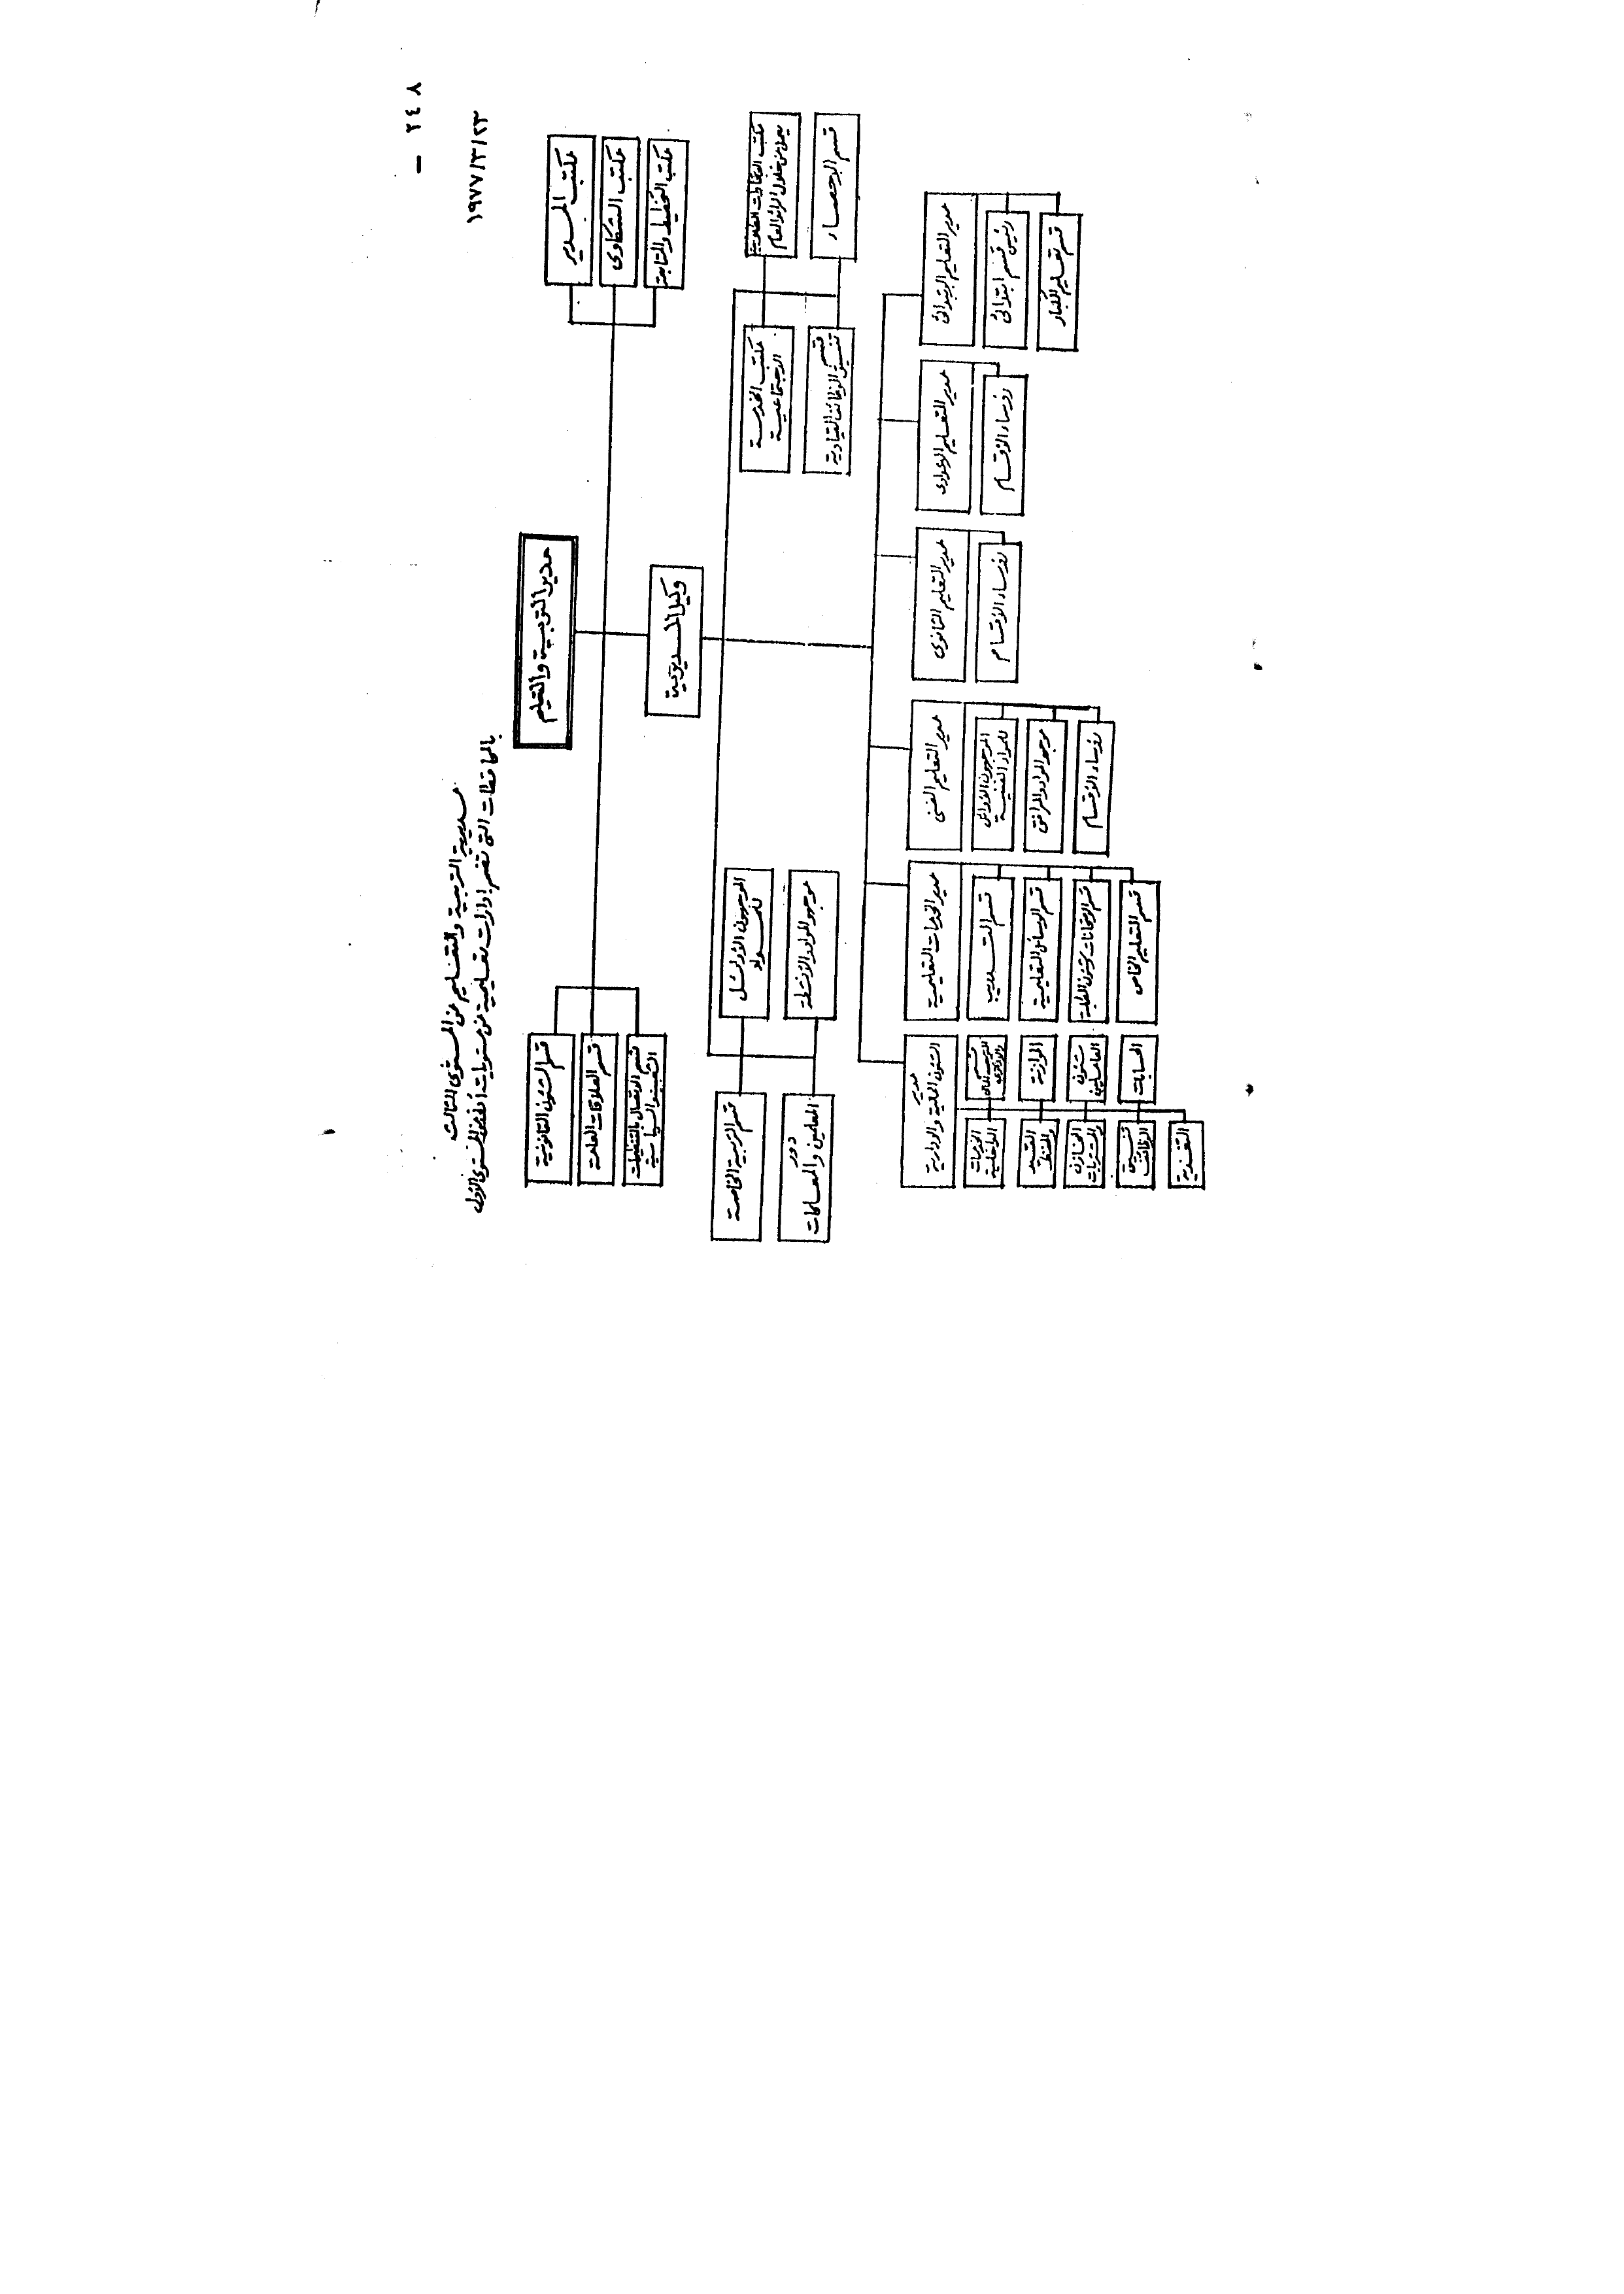 ٢٤٨ –
١٩٧٧/٣/٢٣
مديرية التربية والتعليم من المستوى الثالث
بالمحافظات التى تضم إدارات تعليمية من مستويات أدنى من المستوى الأول
مدير التربية والتعليم
مكتب المدير
مكتب الشكاوى
مكتب التخطيط والمتابعة
قسم الشئون القانونية
قسم العلاقات العامة
قسم الاتصال بالتنظيمات
السياسية
وكيل المديرية
مكتب
يعمل من خلال الرائد العام
قسم الإحصاء
مكتب الخدمة
الاجتماعية
قسم
تنسيق الوظائف القيادية
الموجهون الأوائل
للمواد
موجهو المواد والأنشطة
قسم التربية الخاصة
دور
المعلمين والمعلمات
مدير التعليم الابتدائى
رئيس قسم ابتدائى
قسم تعليم الكبار
مدير التعليم الإعدادى
رؤساء الأقسام
مدير التعليم الثانوى
رؤساء الأقسام
مدير التعليم الفنى
الموجهون الأوائل
للمواد الفنية
موجهو المواد والمرافق
رؤساء الأقسام
مدير الخدمات التعليمية
قسم التدريب
قسم الوسائل التعليمية
قسم الامتحانات وشئون الطلبة
قسم التعليم الخاص
مدير
الشئون المالية والإدارية
قسم
الموازنة
شئون
العاملين
الحسابات
الخدمات
الداخلية
القيد
والحفظ
المخازن
والمشتريات
تنسيق
الوظائف
التغذية